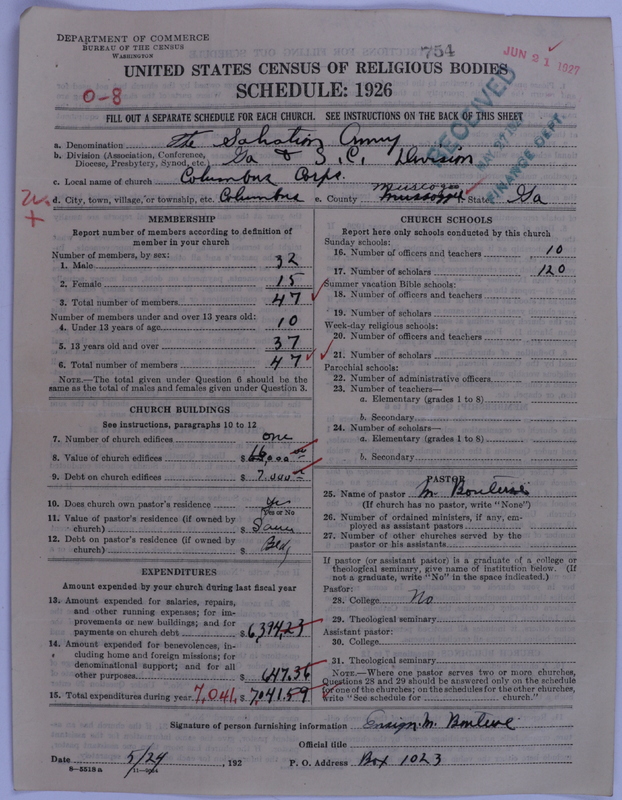 DEPARTMENT OF COMMERCE
BUREAU OF THE CENSUS
WASHINGTON
754
JUN 21 1927
UNITED STATES CENSUS OF RELIGIOUS BODIES
SCHEDULE: 1926
0-8
RECEIVED
MAY 27 192
FINANCE DEPT.
FILL OUT A SEPARATE SCHEDULE FOR EACH CHURCH. SEE INSTRUCTIONS ON THE BACK OF THIS SHEET
a. Denomination The Salvation Army
b. Division (Association, Conference, Diocese, Presbytery, Synod, etc.) Ga & S.C. Division
c. Local name of church Columbus Corps.
d. City, town, village, or township, etc. Columbus e. County Muscogee State Ga
MEMBERSHIP
Report number of members according to definition of
member in your church
Number of members, by sex:
1. Male 32
2. Female 15
3. Total number of members 47
Number of members under and over 13 years old:
4. Under 13 years of age 10
5. 13 years old and over 37
6. Total number of members 47
NOTE.—The total given under Question 6 should be the
same as the total of males and females given under Question 3.
CHURCH BUILDINGS
See instructions, paragraphs 10 to 12
7. Number of church edifices one
8. Value of church edifices $
9. Debt on church edifices $ 7,000
10. Does church own pastor's residence Yes
Yes or No
11. Value of pastor's residence (if owned by
church) $ Same
12. Debt on pastor's residence (if owned by
church) $ Bldg
EXPENDITURES
Amount expended by your church during last fiscal year
13. Amount expended for salaries, repairs,
and other running expenses; for im-
provements or new buildings; and for
payments on church debt $ 6,394.23
14. Amount expended for benevolences, in-
cluding home and foreign missions; for
denominational support; and for all
other purposes $ 647.36
15. Total expenditures during year 7,041 $ 7,041.59
CHURCH SCHOOLS
Report here only schools conducted by this church
Sunday schools:
16. Number of officers and teachers 10
17. Number of scholars 120
Summer vacation Bible schools:
18. Number of officers and teachers
19. Number of scholars
Week-day religious schools:
20. Number of officers and teachers
21. Number of scholars
Parochial schools:
22. Number of administrative officers
23. Number of teachers—
a. Elementary (grades 1 to 8)
b. Secondary
24. Number of scholars—
a. Elementary (grades 1 to 8)
b. Secondary
PASTOR
25. Name of pastor M.
(If church has no pastor, write "None")
26. Number of ordained ministers, if any, em-
ployed as assistant pastors
27. Number of other churches served by the
pastor or his assistants
If pastor (or assistant pastor) is a graduate of a college or
theological seminary, give name of institution below. (If
not a graduate, write "No" in the space indicated.)
Pastor:
28. College No
29. Theological seminary
Assistant pastor:
30. College
31. Theological seminary
NOTE.—Where one pastor serves two or more churches,
Questions 28 and 29 should be answered only on the schedule
for one of the churches; on the schedules for the other churches,
write "See schedule for church."
Signature of person furnishing information Ensign M.
Official title
Date 5/24, 192 P. O. Address Box 1023
8—5518 a 11—9164